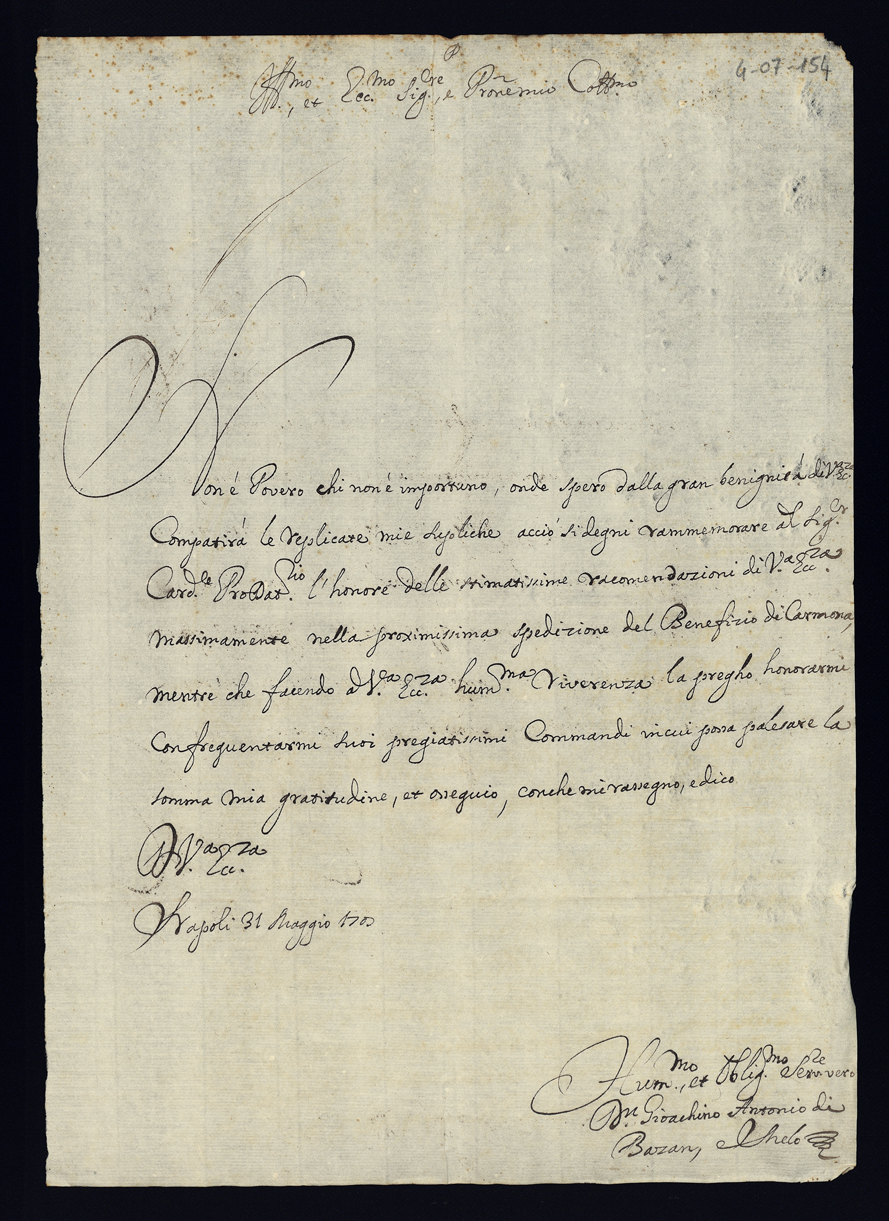 4-07-154
Ill.mo, et Ecc.mo Sig.re, e Pron mio Coll.mo
Non é Povero chi non é importuno, onde spero dalla gran benignitá di V.a Ecc.za
Compatirá le replicate mie supliche acció si degni rammemorare al Sig.r
Card.le ProDat.rio l'honore delle stimatissime racomendazioni di V.a Ecc.za
massimamente nella proximissima spedizione del Benefizio di Carmona,
mentre che facendo a V.a Ecc.za hum.ma riverenza la pregho honorarmi
Confrequentarmi suoi pregiatissimi Commandi in cui possa palesare la
somma mia gratitudine, et ossequio, con che mi rassegno, e dico
D V.a Ecc.za
Napoli 31 Maggio
Hum.mo, et Oblig.mo Serv.re vero
Dn Gioachino Antonio di
Bazan, e